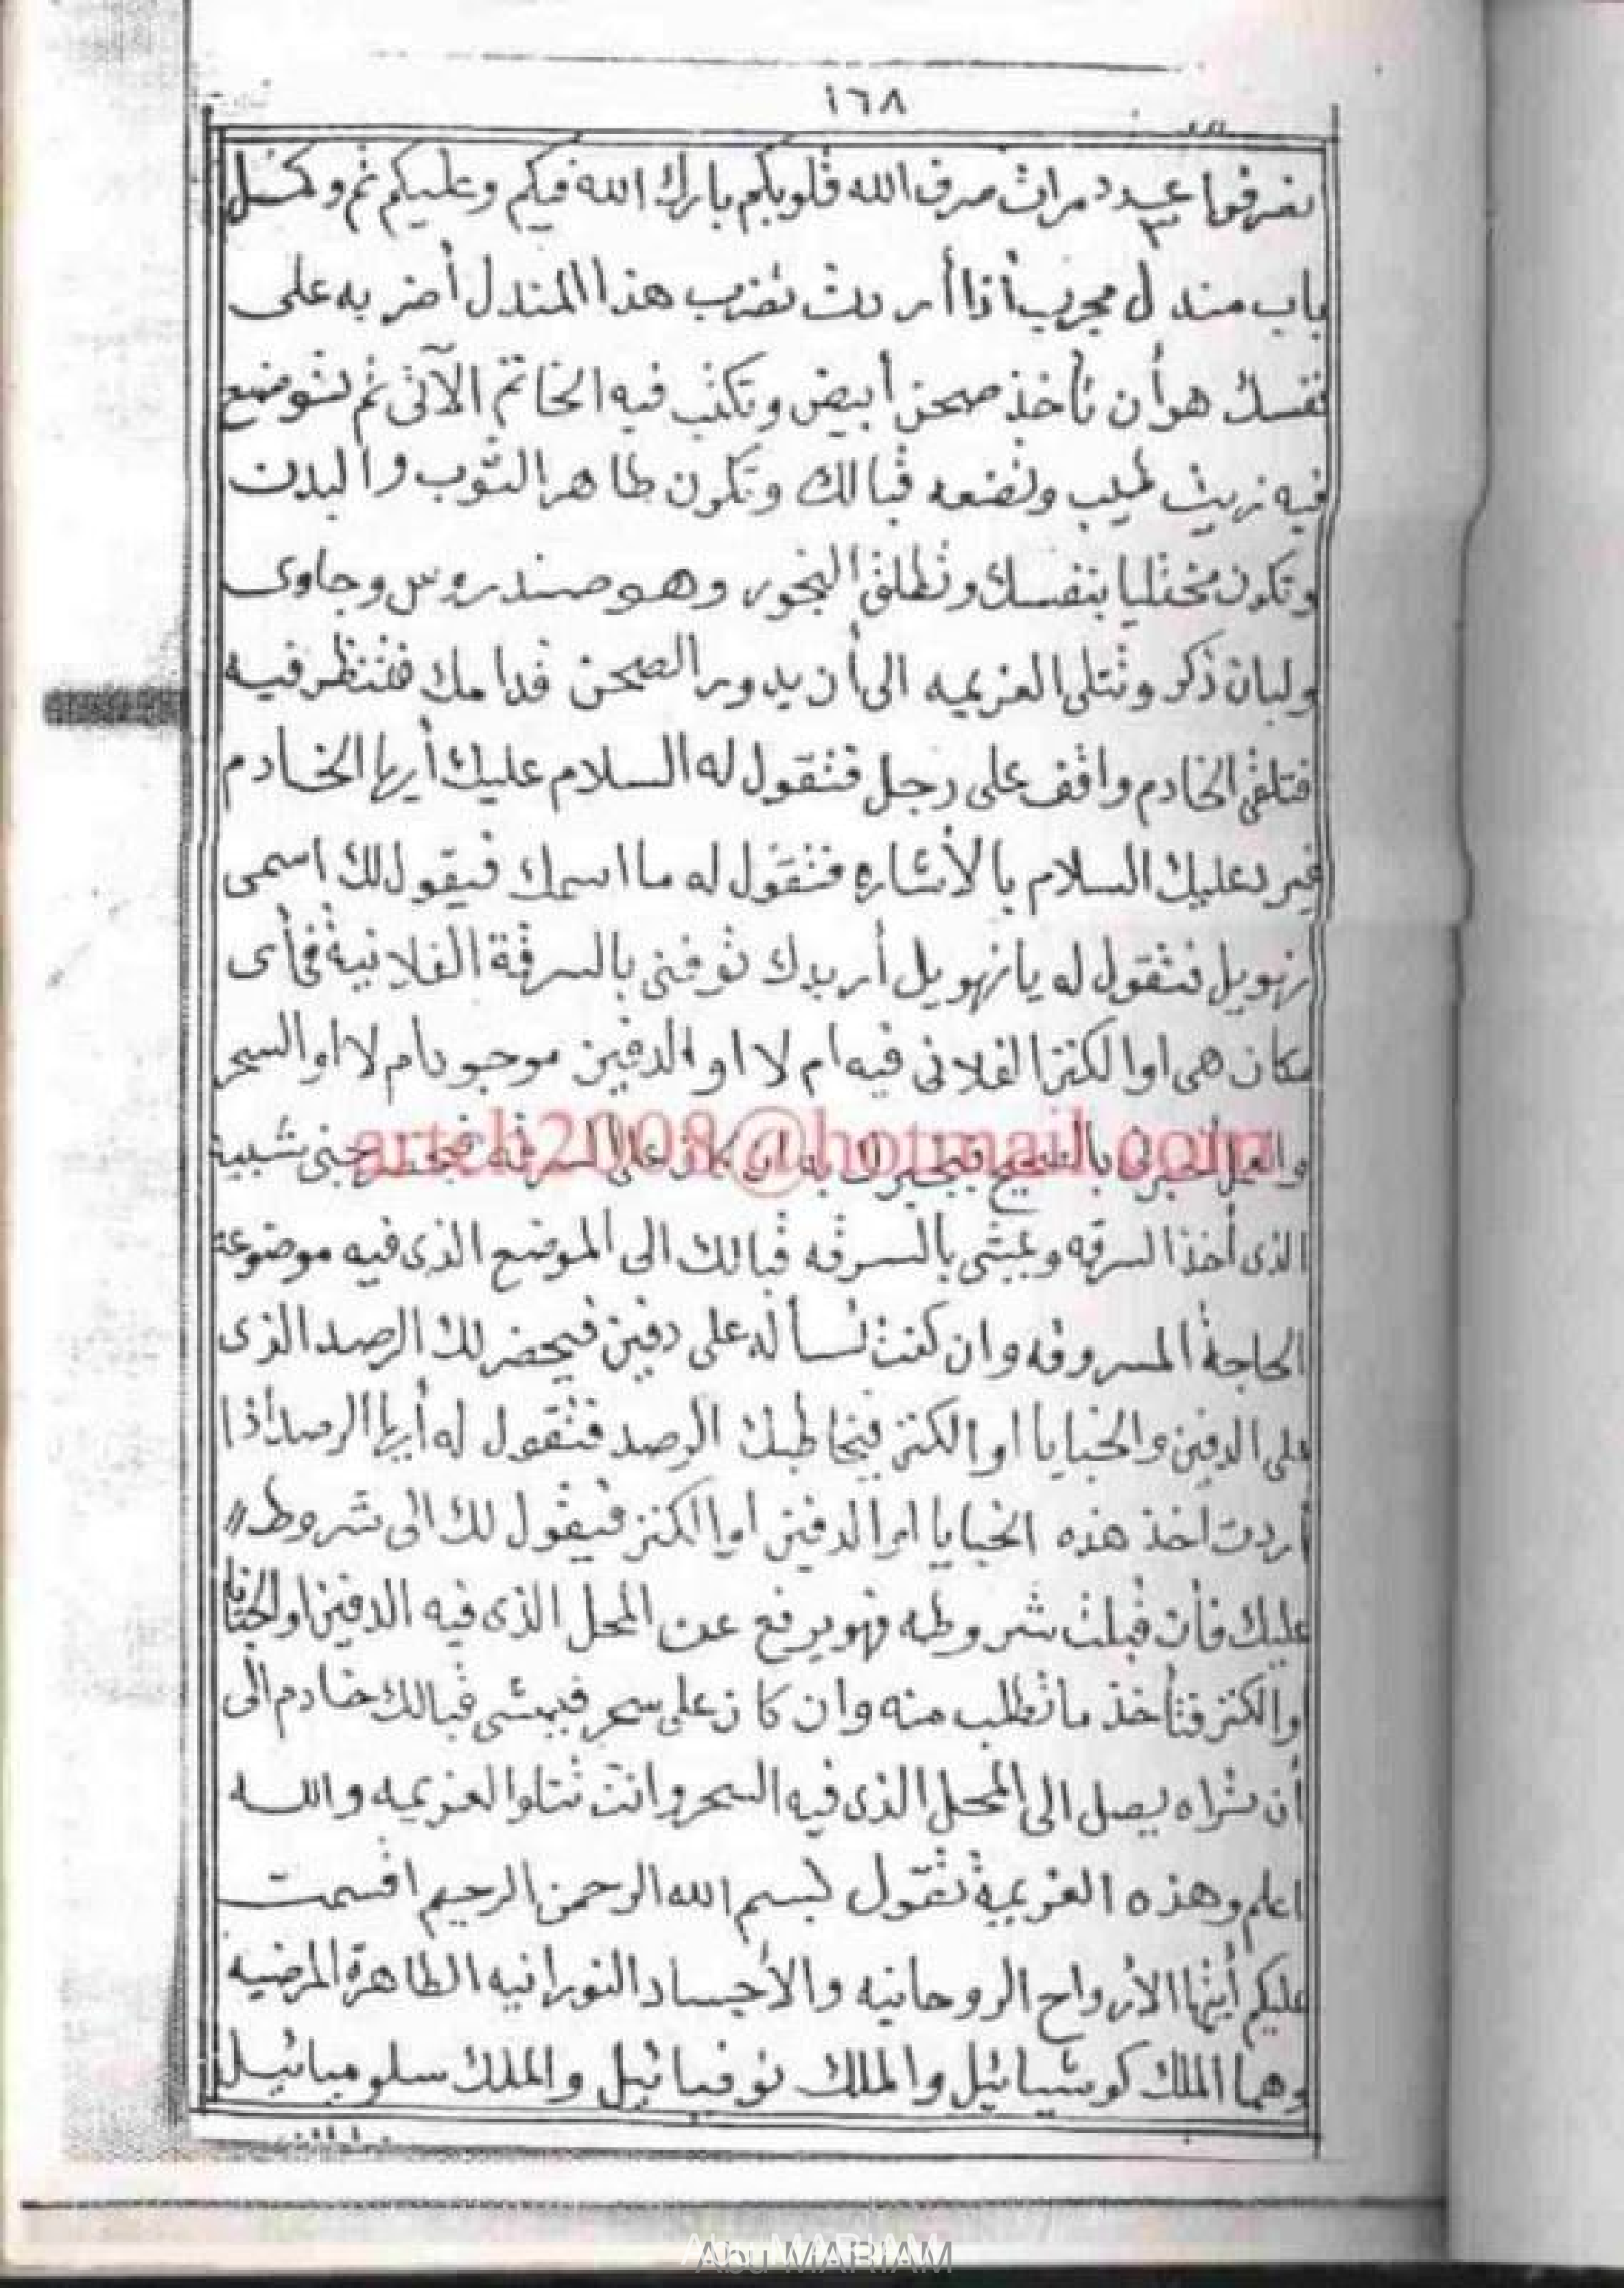 ١٦٨
نفرقوا عدد مرات صرف الله قلوبكم بارك الله فيكم وعليكم تم وكمل
باب مندل مجرب أذا أردت تضرب هذا المندل أضربه على
نفسك هو أن تأخذ صحن أبيض وتكتب فيه الخاتم الآتى ثم توضع
فيه زيت طيب وتضعه قبالك وتكون طاهر الثوب والبدن
وتكون مختليا بنفسك وتطلق البخور وهو صندروس وجاوى
ولبان ذكر وتتلى العزيميه الى أن يدور الصحن قدامك فتنظر فيه
فتلقى الخادم واقف على رجل فتقول له السلام عليك أيها الخادم
فيرد عليك السلام بالأشاره فتقول له ما اسمك فيقول لك اسمى
زهويل فتقول له يا زهويل أريدك توفنى بالسرقة الفلانية فى أى
مكان هى او الكنز الفلانى فيه ام لا او الدفين موجود ام لا او السحر
arteh2008@hotmail.com
بالصحيح فيخبرك به ان كان على السرقه شبيه
الذى أخذ السرقه ويمشى بالسرقه قبالك الى الموضع الذى فيه موضوعة
الحاجة المسروقه وان كنت تسأله على دفين فيحضر لك الرصد الذى
على الدفين والخبايا او الكنز فيخاطبك الرصد فتقول له أيها الرصد أذا
أردت اخذ هذه الخبايا او الدفين او الكنز فيقول لك الى شروط //
عليك فأن قبلت شروطه فهو يرفع عن المحل الذى فيه الدفين او الخبايا
او الكنز فتأخذ ما تطلب منه وان كان على سحر فيمشى قبالك خادم الى
أن تراه يصل الى المحل الذى فيه السحر وانت تتلوا العزيميه والله
اعلم وهذه العزيمية تقول بسم الله الرحمن الرحيم اقسمت
عليكم أيتها الأرواح الروحانيه والأجساد النورانيه الطاهرة المرضيه
وهما الملك كوشيائيل والملك نوفيائيل والملك سلوميائيل
Abu MARIAM